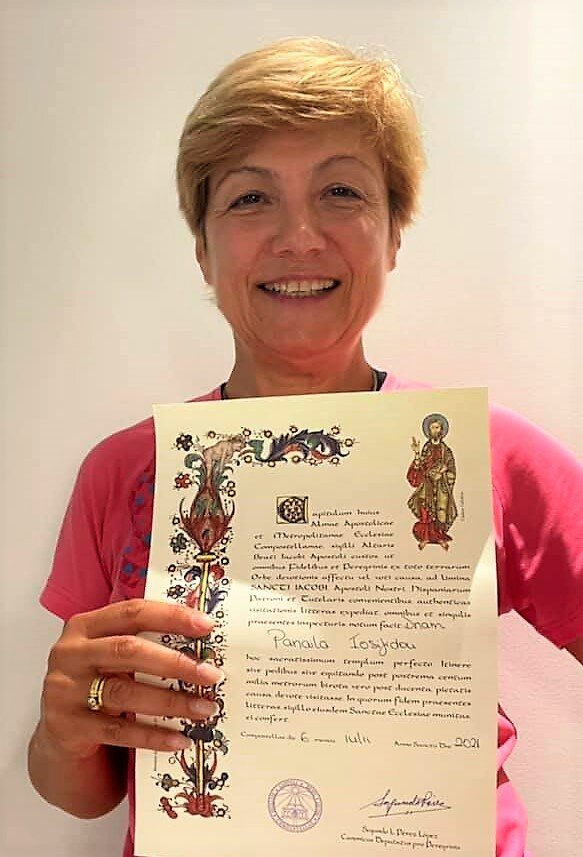 Capitulum huius
Almae Apostolicae
et Metropolitanae Ecclesiae
Compostellanae, sigilli Altaris
Beati Iacobi Apostoli custos ut
omnibus Fidelibus et Peregrinis ex toto terrarum
Orbe devotionis affectu vel voti causa ad limina
SANCTI IACOBI Apostoli Nostri Hispaniarum
Patroni et Tutelaris convenientibus authenticas
visitationis litteras expediat omnibus et singulis
praesentes inspecturis notum facit Dnam
Panaila
hoc sacratissimum templum perfecto Itinere
sive pedibus sive equitando post postrema centum
milia metrorum birota vero post ducenta pietatis
causa devote visitasse. In quorum fidem praesentes
litteras sigillo eiusdem Sanctae Ecclesiae munitas
ei confert.
Compostellae die 6 mensis Iulii Anno Sancto Dni 2021
Segundo L. Pérez López
Canonicus Deputatus pro Peregrinis